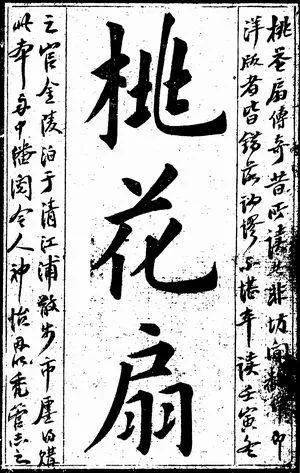 桃花扇傳奇昔所讀非坊間即
洋版者皆錯落訛謬不堪卒讀壬寅冬
桃花扇
之官金陵泊于清江浦散步市廛購
此本舟中繙閱令人神怡以禿管志之